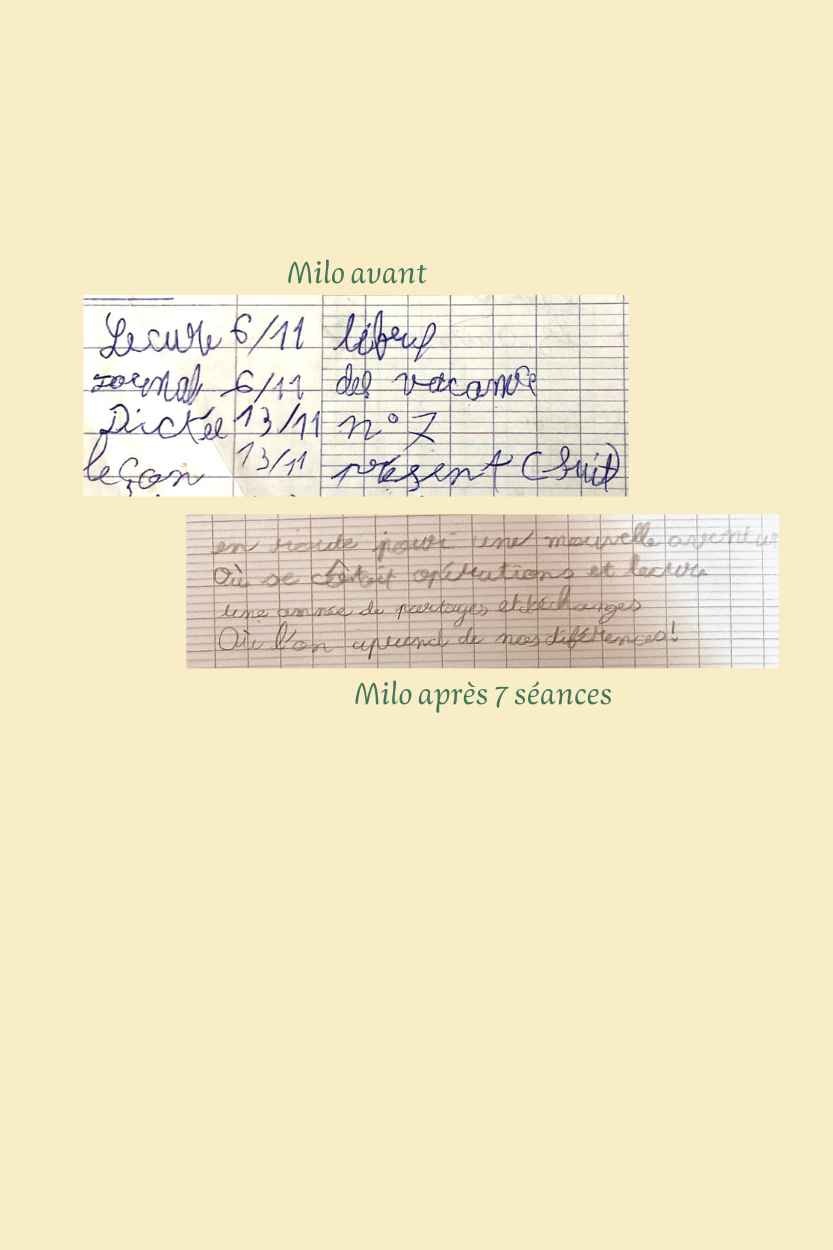 Milo avant
Lecure 6/11
Jornal 6/11 des vacance
Dictée 13/11 n° 7
leçon 13/11 présent (suit)
en route pour une nouvelle aventur
Où se opérations et lecture
une année de partages et échanges
Où l'on aprend de nos diférences!
Milo après 7 séances